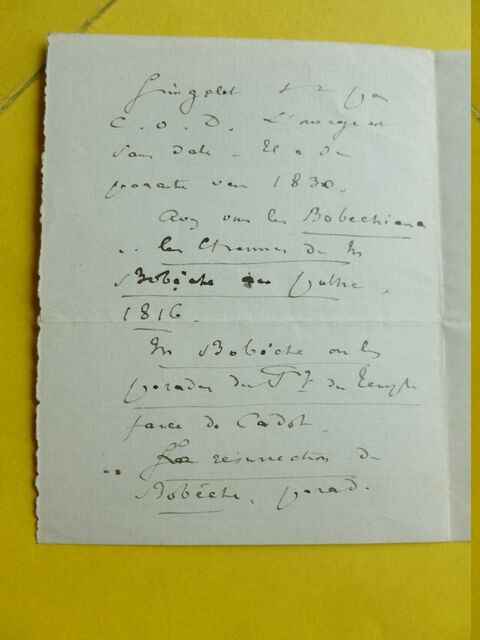 Gringalet
C.O.D. L'ouvrage est
sans date - Il a du
paraitre vers 1830.
Avez vous les Bobechiana
.. les Etrennes de Mr
Bobèche au public.
1816.
Mr Bobèche ou les
parades du Bd du Temple
farce de Cadot.
.. La résurrection de
Bobèche. parad.